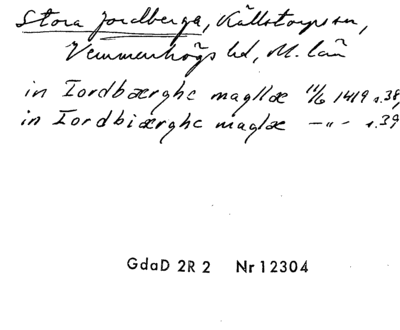 Stora Jordberga, Källstorps sn,
Vemmenhögs hd, M. län
in Iordbærghe magllæ 11/6 1419 s.38,
in Iordbiærghe maglæ —"— s.39
GdaD 2R2 Nr 12304